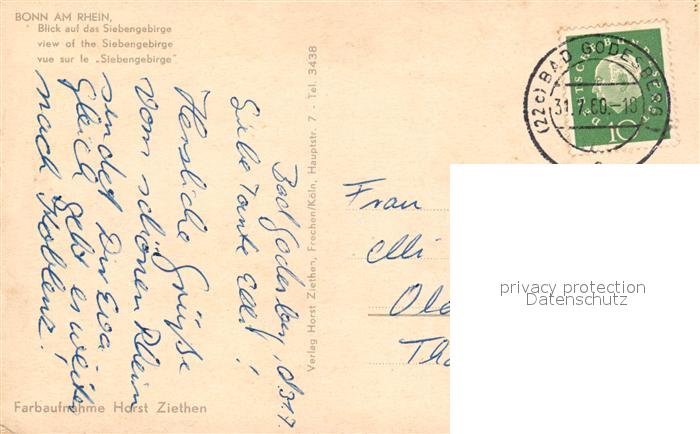 BONN AM RHEIN,
Blick auf das Siebengebirge
view of the Siebengebirge
vue sur le „Siebengebirge"
Bad Godesberg, d. 31.7.
Liebe Tante Elli!
Herzliche Grüße
vom schönen Rhein
sendet Dir Eva
Gleich geht es weiter
nach Koblenz!
Farbaufnahme Horst Ziethen
Verlag Horst Ziethen, Frechen/Köln, Hauptstr. 7 - Tel. 3438
DEUTSCHE BUNDESPOST
10
(22c) BAD GODESBERG 1
31.7.60.-18
Frau
Elli
Ol
Th
privacy protection
Datenschutz